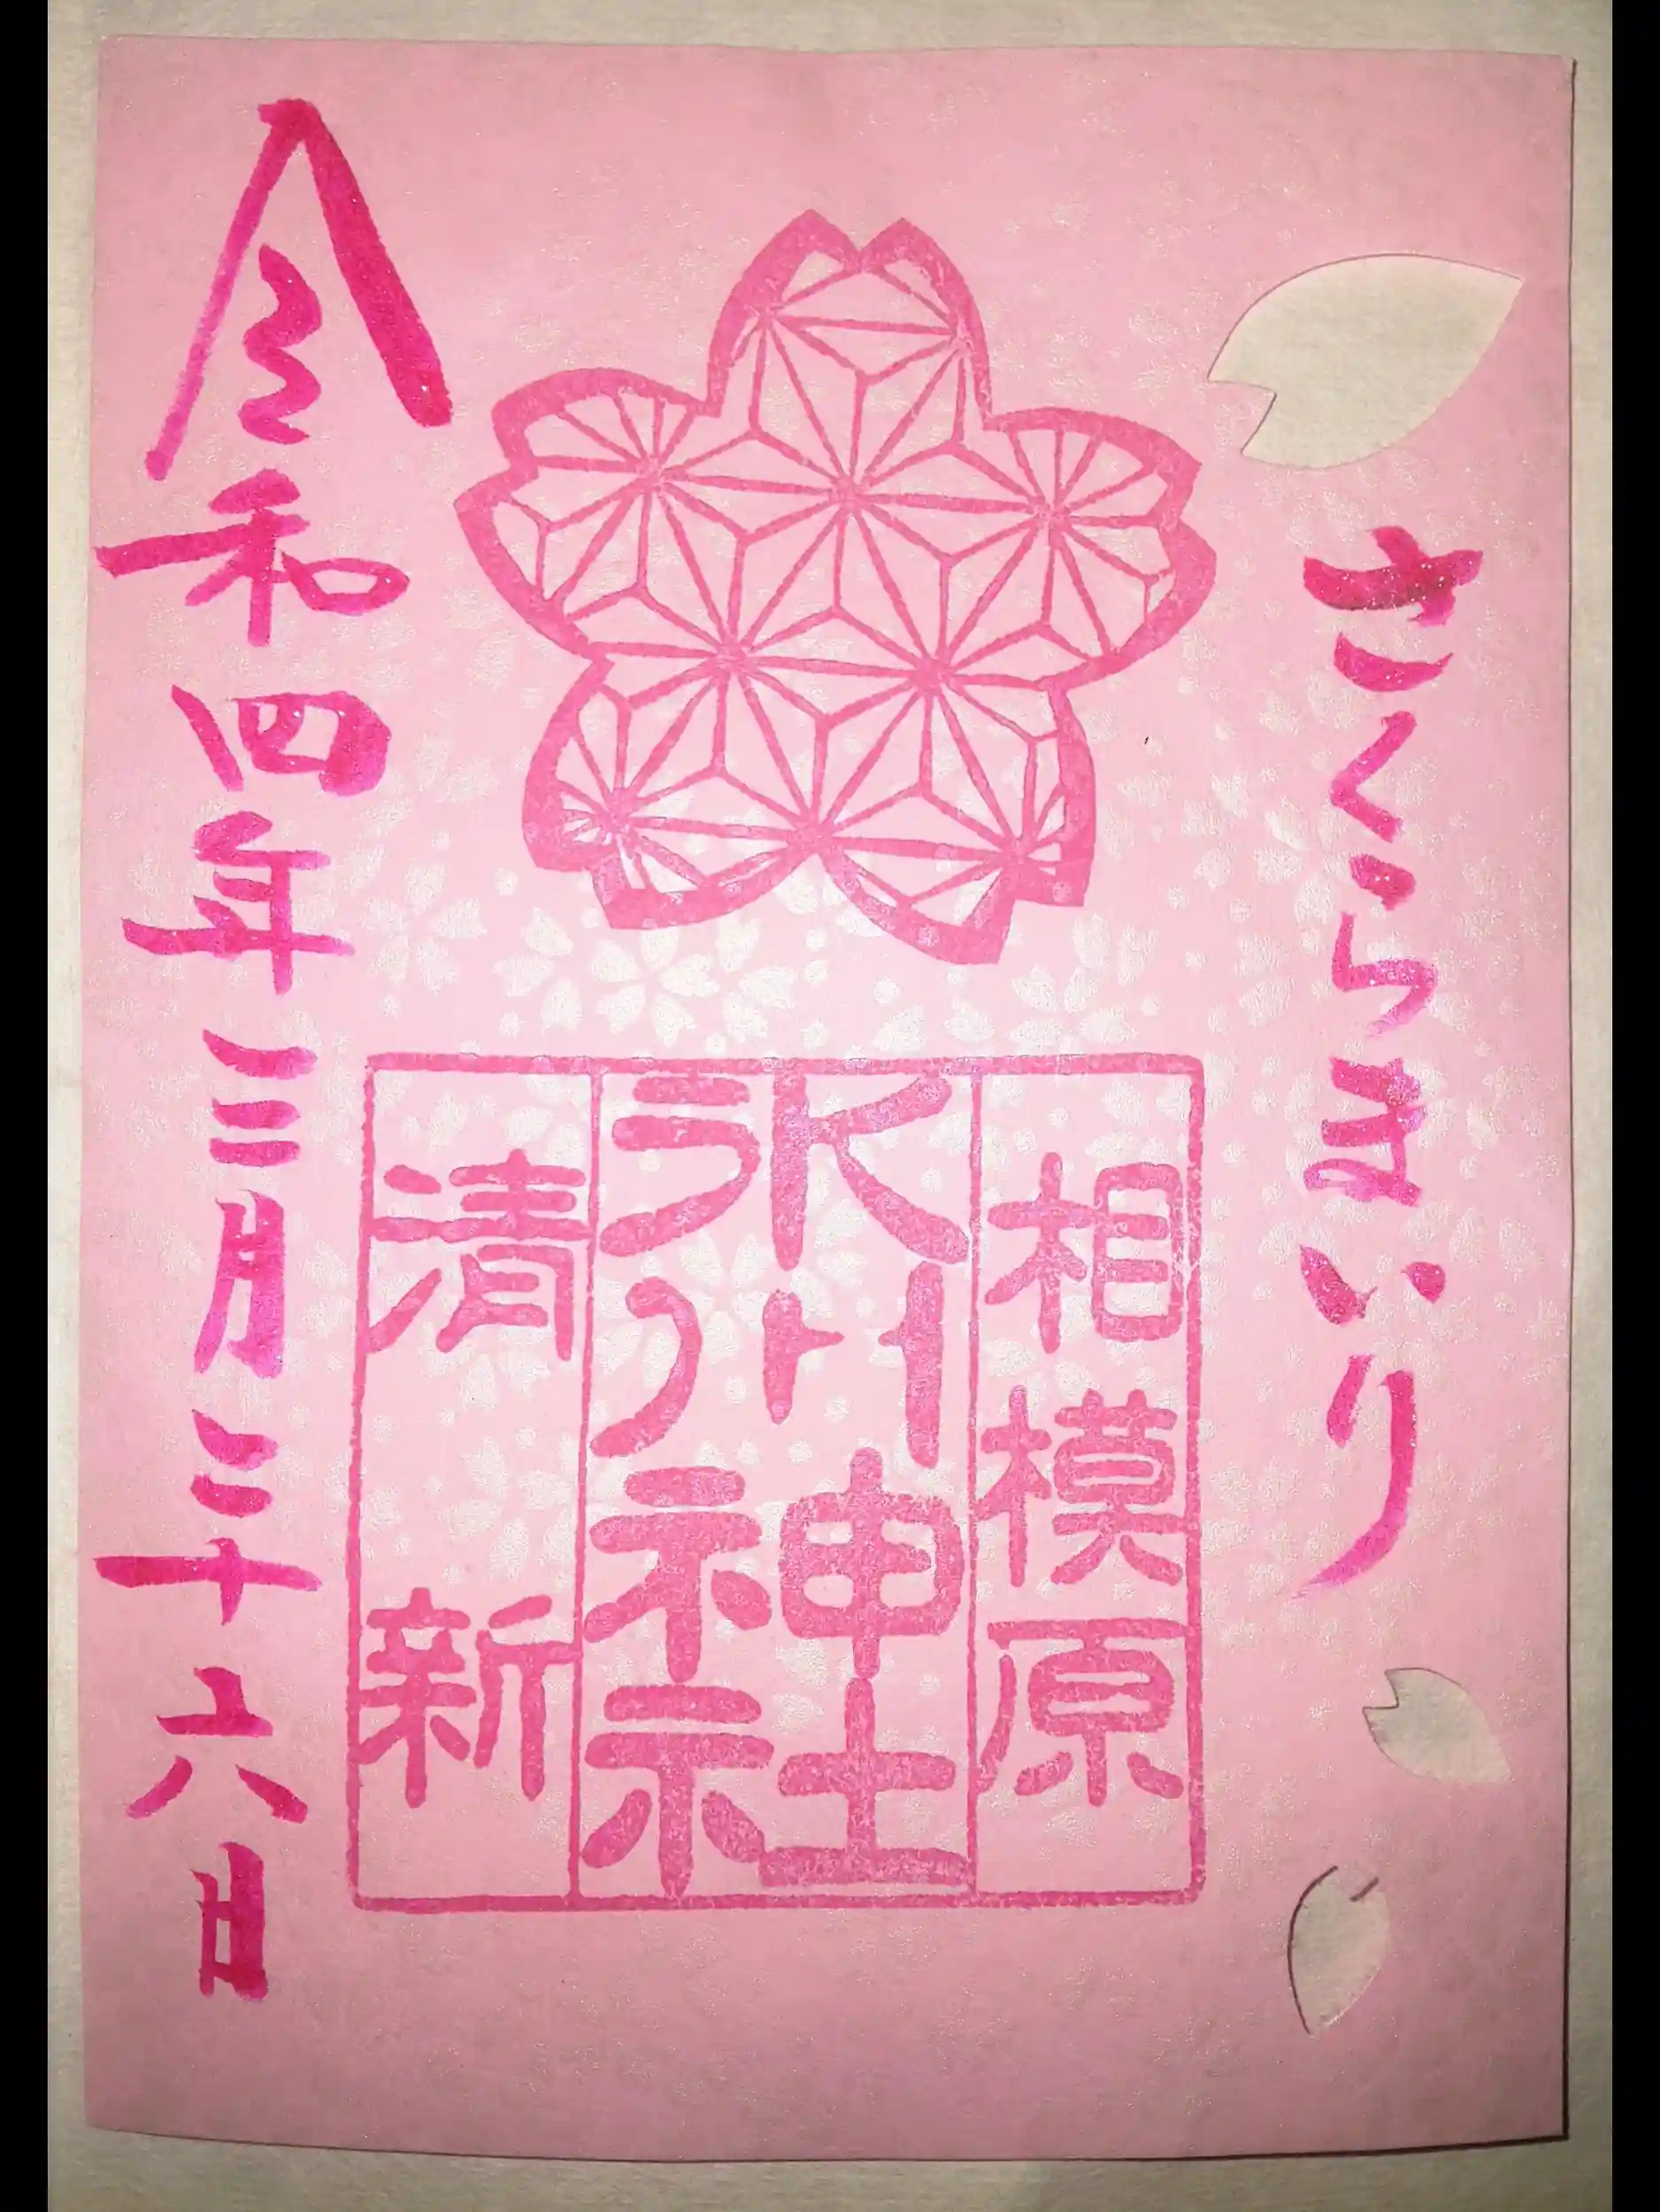 さくらまいり
相模原
氷川神社
清新
令和四年三月二十六日